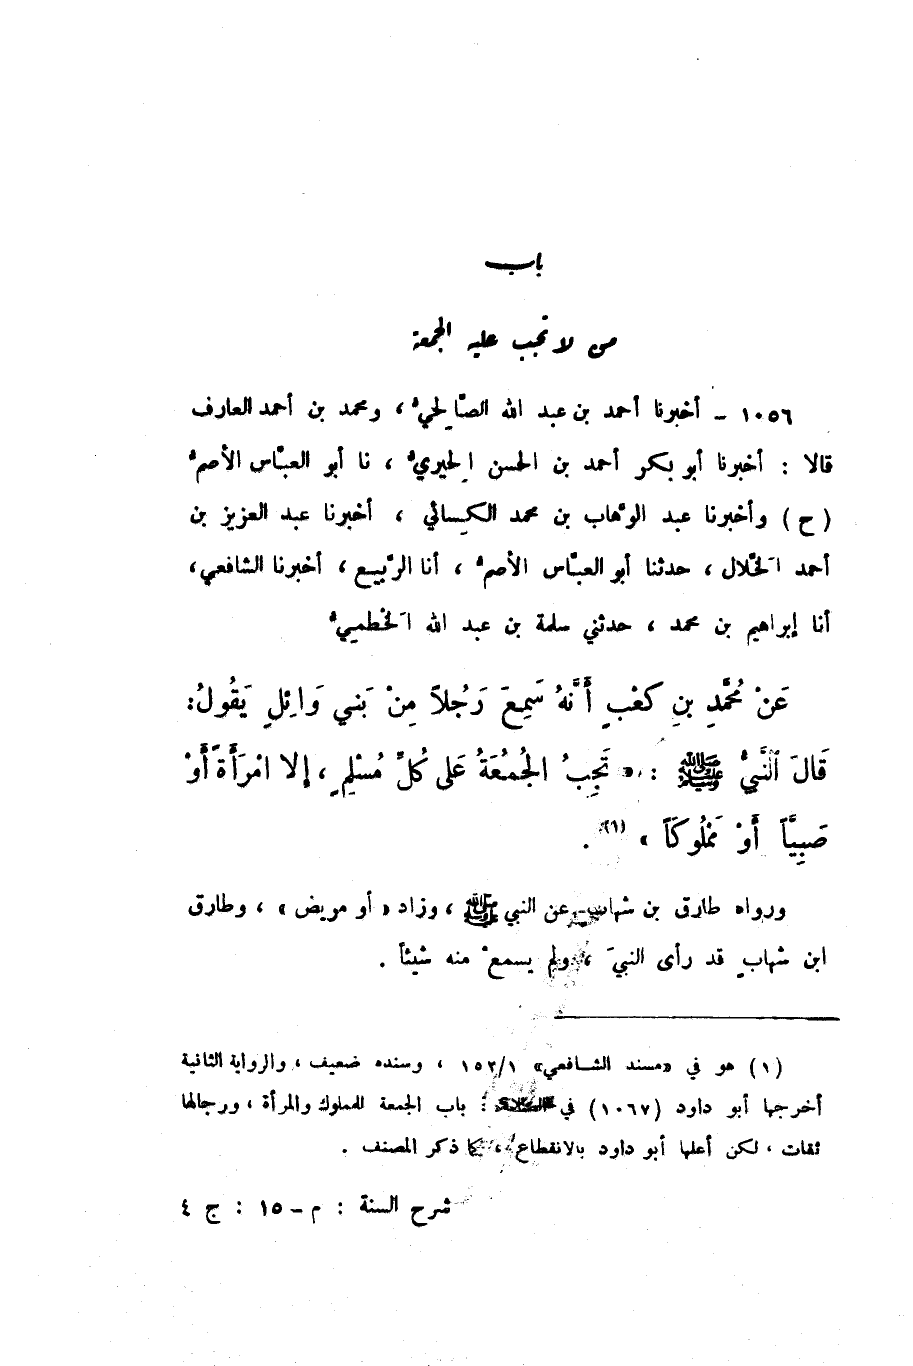 باب
من لا تجب عليه الجمعة
١٠٥٦ – أخبرنا أحمد بن عبد الله الصّالِحيُّ ، ومحمد بن أحمد العارف
قالا : أخبرنا أبو بكر أحمد بن الحسن الحِيريُّ ، نا أبو العبّاس الأصمُّ
( ح ) وأخبرنا عبد الوهّاب بن محمد الكِسائي ، أخبرنا عبد العزيز بن
أحمد الَخلّال ، حدثنا أبو العبّاس الأصمُّ ، أنا الرّبيع ، أخبرنا الشافعي ،
أنا إبراهيم بن محمد ، حدثني سلمة بن عبد الله الَخطميُّ
عَنْ مُحَمَّدِ بنِ كَعْبٍ أَنَّهُ سَمِعَ رَجُلاً مِنْ بَني وَائِلٍ يَقُولُ :
قَالَ النَّبيُّ ﷺ : « تَجِبُ الجُمُعَةُ عَلى كُلِّ مُسْلِمٍ ، إلا امْرَأَةً أَوْ
صَبِيَّاً أَوْ مَمْلُوكَاً » (١) .
ورواه طارق بن شهاب عن النبي ﷺ ، وزاد « أو مريض » ، وطارق
ابن شهابٍ قد رأى النبيَ ، ولم يسمعْ منه شيئاً .
(١) هو في «مسند الشافعي» ١٥٣/١ ، وسنده ضعيف ، والرواية الثانية
أخرجها أبو داود (١٠٦٧) في الصلاة : باب الجمعة للمملوك والمرأة ، ورجالها
ثقات ، لكن أعلها أبو داود بالانقطاع ، كما ذكر المصنف .
شرح السنة : م – ١٥ : ج ٤